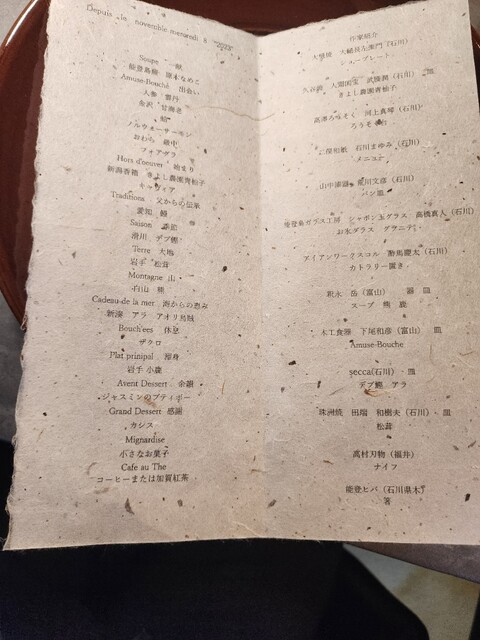 Depuis le novembre mercredi 8 "2023"
Soupe 一献
能登島 原木なめこ
Amuse-Bouche 出会い
人参 雲丹
金沢 甘海老
鯖
ノルウェーサーモン
おわら 最中
フォアグラ
Hors d'oeuver 始まり
新潟香箱 きよし農園青柚子
キャヴィア
Traditions 父からの伝承
愛知 鰻
Saison 季節
滑川 デブ鰹
Terre 大地
岩手 松茸
Montagne 山
白山 熊
Cadeau de la mer 海からの恵み
新湊 アラ アオリ烏賊
Bouch'ees 休息
ザクロ
Plat prinipal 渾身
岩手 小鹿
Avent Dessert 余韻
ジャスミンのプティポー
Grand Dessert 感謝
カシス
Mignardise
小さなお菓子
Cafe au The
コーヒーまたは加賀紅茶
作家紹介
大樋焼 大樋長左衛門(石川)
ショープレート
久谷焼 人間国宝 武腰潤(石川) 皿
きよし農園青柚子
高澤ろうそく 河上真琴(石川)
ろうそく台
二俣和紙 石川まゆみ(石川)
メニュー
山中漆器 荒川文彦(石川)
パン皿
能登島ガラス工房 シャボン玉グラス 高橋真人(石川)
お水グラス グラニテ
アイアンワークスコル 酢馬慶太(石川)
カトラリー置き
釈永 岳(富山) 器 皿
スープ 熊 鹿
木工食器 下尾和彦(富山) 皿
Amuse-Bouche
secca(石川) 皿
デブ鰹 アラ
珠洲焼 田端 和樹夫(石川) 皿
松茸
高村刃物(福井)
ナイフ
能登ヒバ(石川県木)
箸